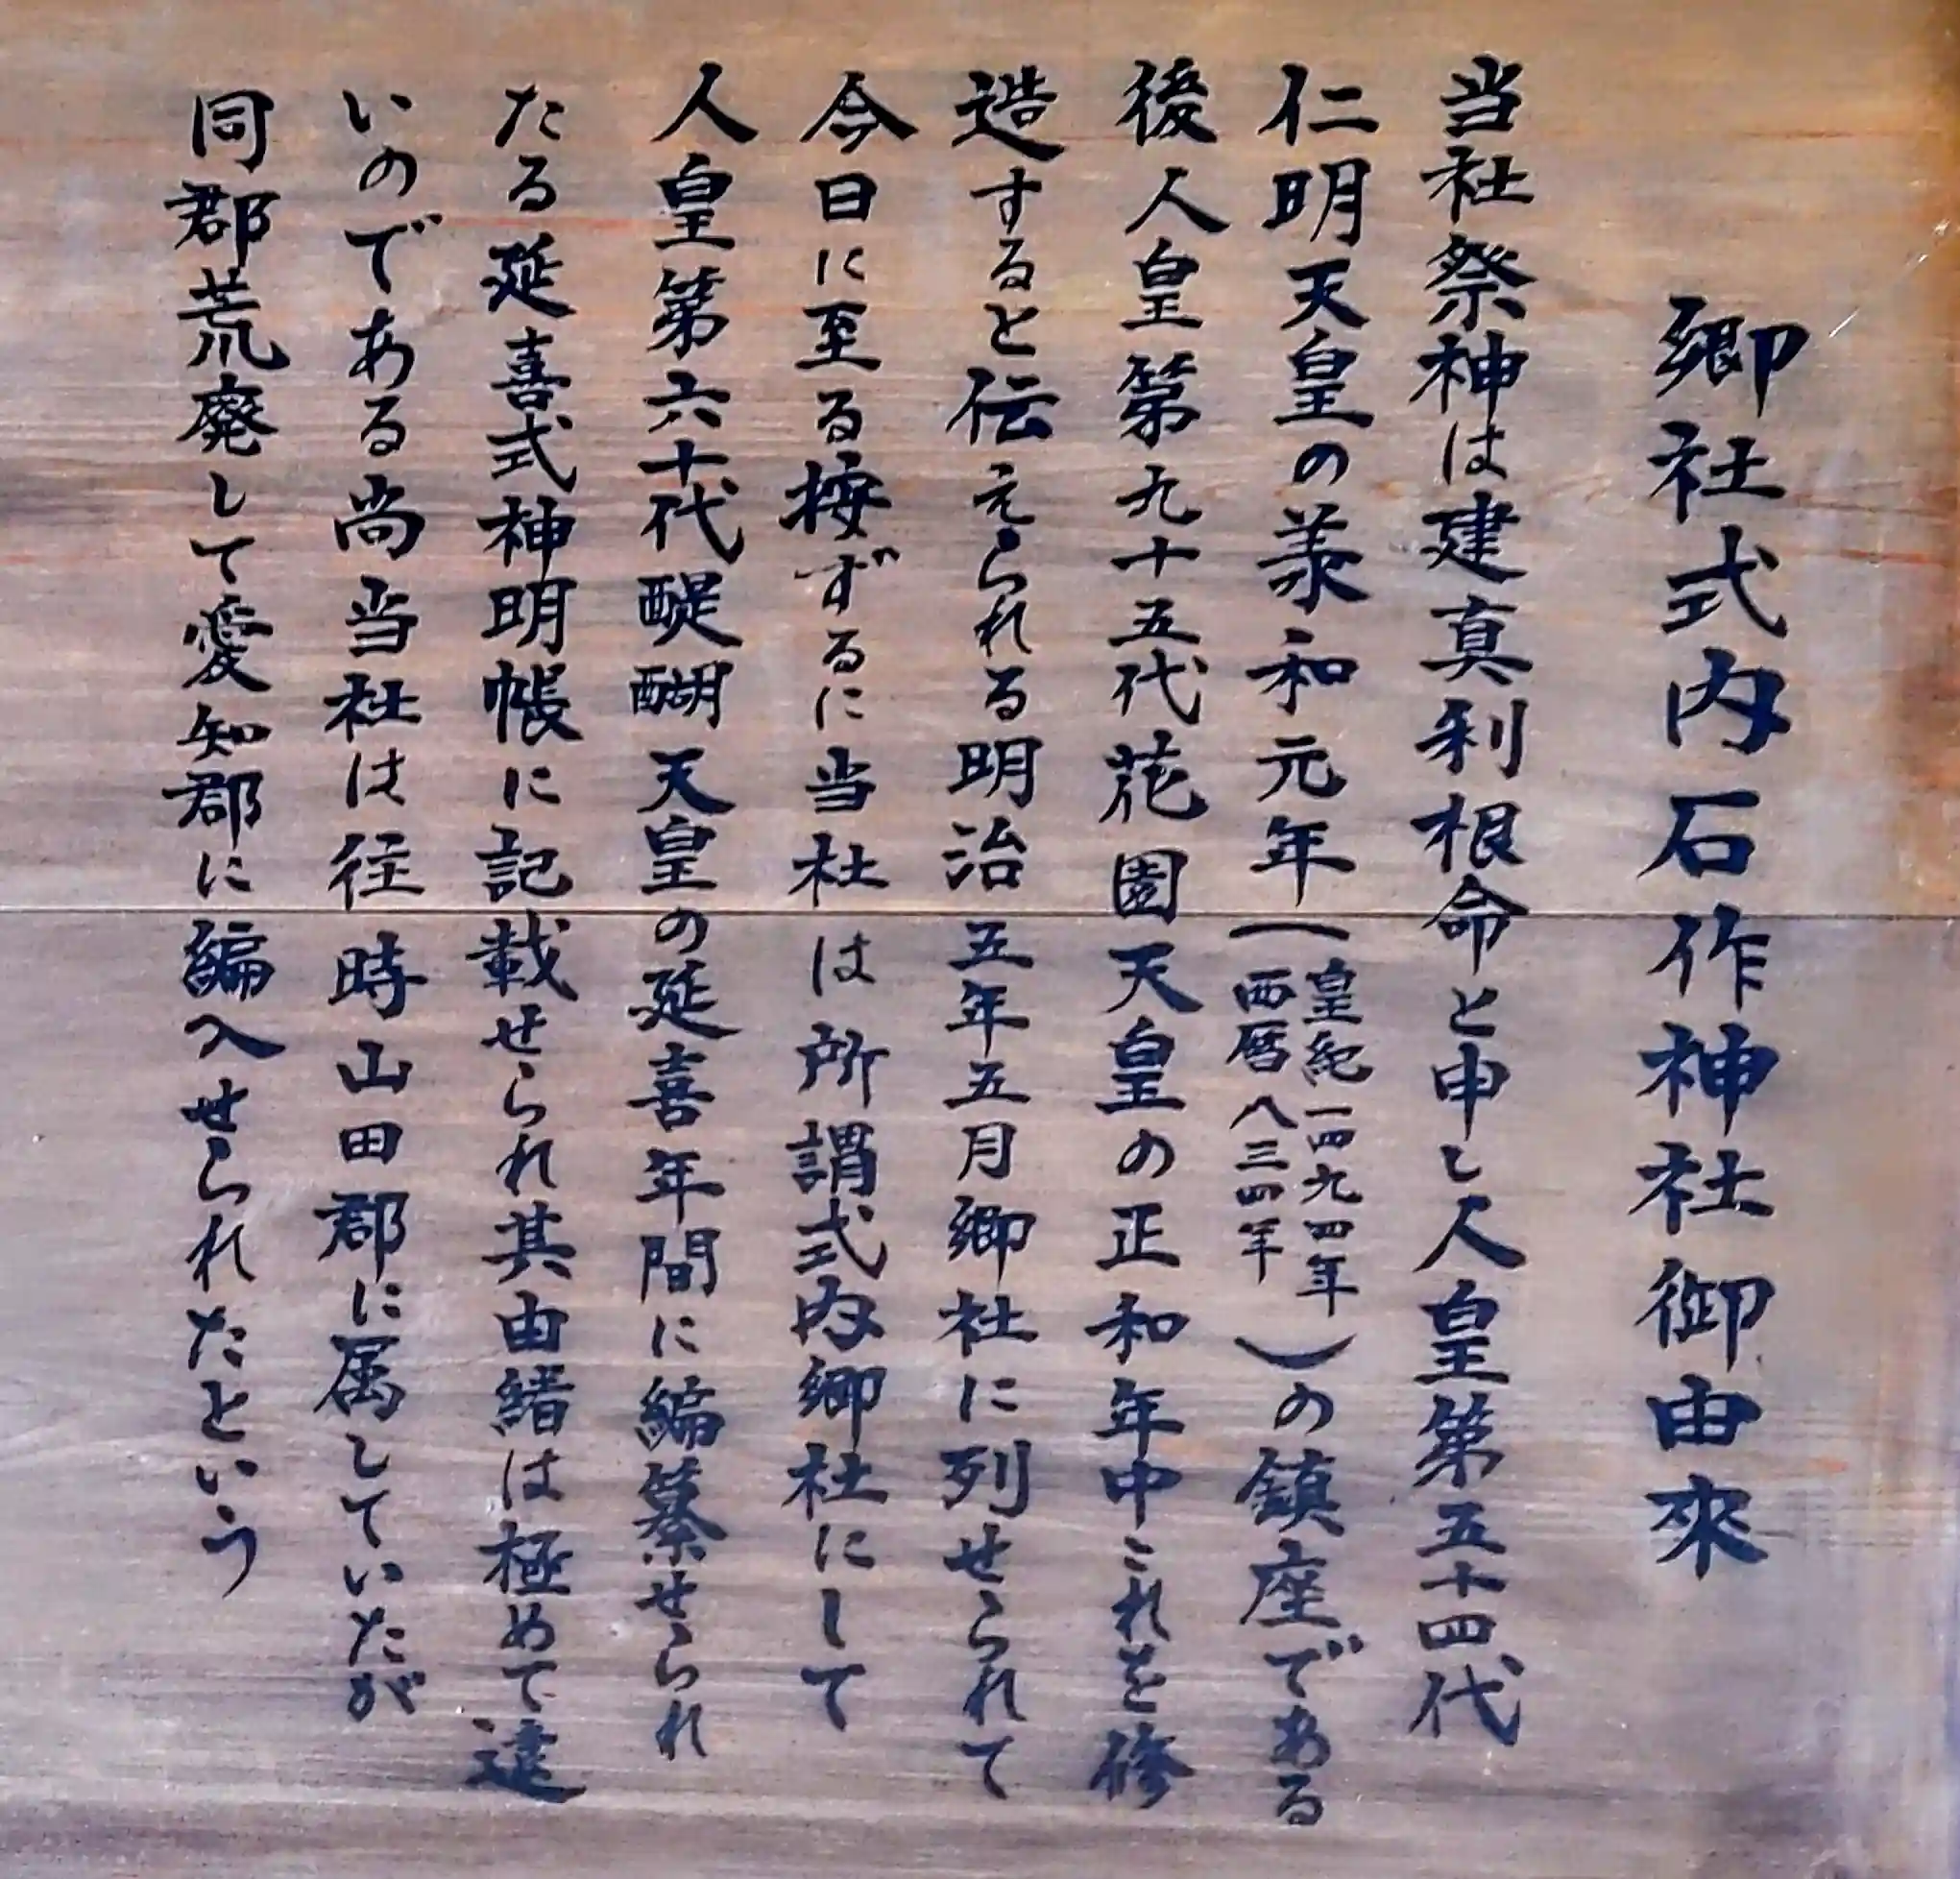 郷社式内石作神社御由来
当社祭神は建真利根命と申し人皇第五十四代
仁明天皇の承和元年(皇紀一四九四年 西暦八三四年)の鎮座である
後人皇第九十五代花園天皇の正和年中これを修
造すると伝えられる明治五年五月郷社に列せられて
今日に至る按ずるに当社は所謂式内郷社にして
人皇第六十代醍醐天皇の延喜年間に編纂せられ
たる延喜式神明帳に記載せられ其由緒は極めて遠
いのである尚当社は往時山田郡に属していたが
同郡荒廃して愛知郡に編入せられたという